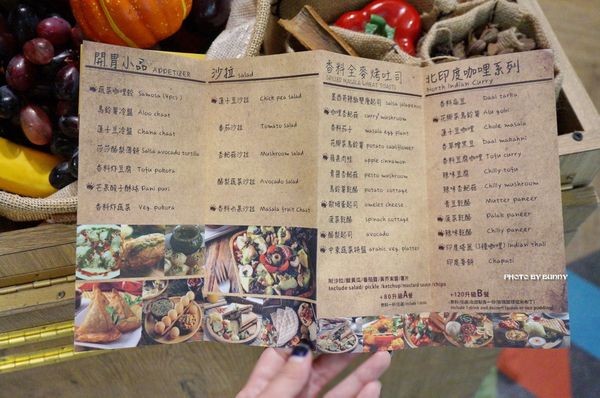 開胃小品 APPETIZER
蔬菜咖哩餃 Samosa (4pcs)
馬鈴薯冷盤 Aloo chaat
蓮十豆冷盤 Chana chaat
莎莎酪梨薄餅 Salsa avocado tortilla
香料炸豆腐 Tofu pukora
Pani puri
香料炸蔬菜 Veg. pukora
沙拉 Salad
蓮十豆沙拉 Chick pea salad
番茄沙拉 Tomato salad
香菇沙拉 Mushroom salad
酪梨蔬菜沙拉 Avocado salad
香料水果沙拉 Masala fruit Chaat
香料全麥烤吐司
SPICED MASALA WHEAT TOASTS
salsa jalapeno
curry mushroom
香料茄子 masala egg plant
花椰菜馬鈴薯 potato cauliflower
蘋果肉桂 apple cinnamon
pesto mushroom
potato cottage
omelet cheese
菠菜乾酪 spinach cottage
酪梨起司 avocado
中東蔬菜拼盤 arabic veg. platter
Include salad/ pickle /ketchup/mustard sauce /chips
+80升級A餐
北印度咖哩系列
North Indian Curry
香料扁豆 Daal tarka
花椰菜馬鈴薯 Alu gobi
蓮十豆咖哩 Chole masala
Daal makahni
香料豆腐咖哩 Tofu curry
辣味豆腐 Chilly tofu
辣味香菇 Chilly mushroom
青豆乾酪 Mutter paneer
菠菜乾酪 Palak paneer
辣味乾酪 Chilly paneer
Indian thali
印度麥餅 Chapati
+120升級B餐
PHOTO BY BUNNY